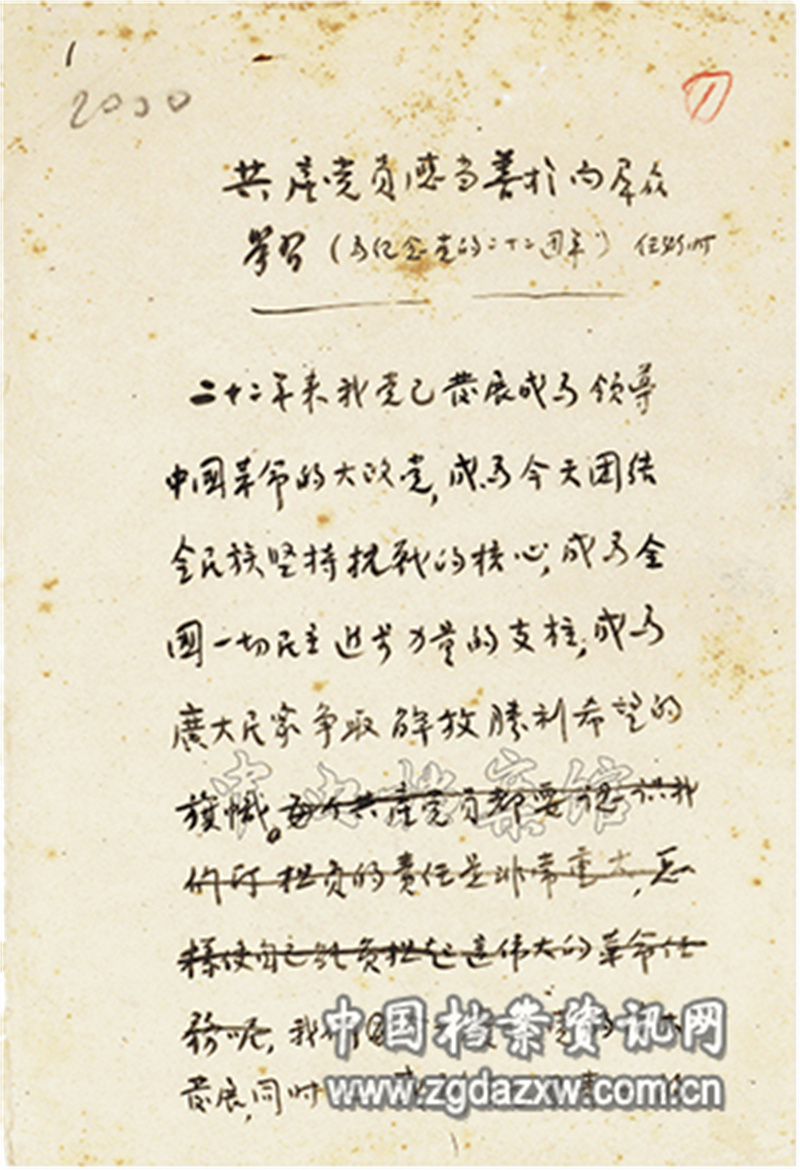 1
2000
11
共產党員應当善於向群众
學習（为纪念党的二十二週年）任弼时
二十二年来我党已發展成为领导
中國革命的大政党，成为今天团结
全民族坚持抗战的核心，成为全
國一切民主进步力量的支柱，成为
廣大民众争取解放勝利希望的
旗幟。每个共產党員都要認识我
们所担負的責任是非常重大，怎
樣使自己能負担起这偉大的革命任
務呢，我们
發展，同时
中央档案馆
中国档案资讯网
www.zgdazxw.com.cn